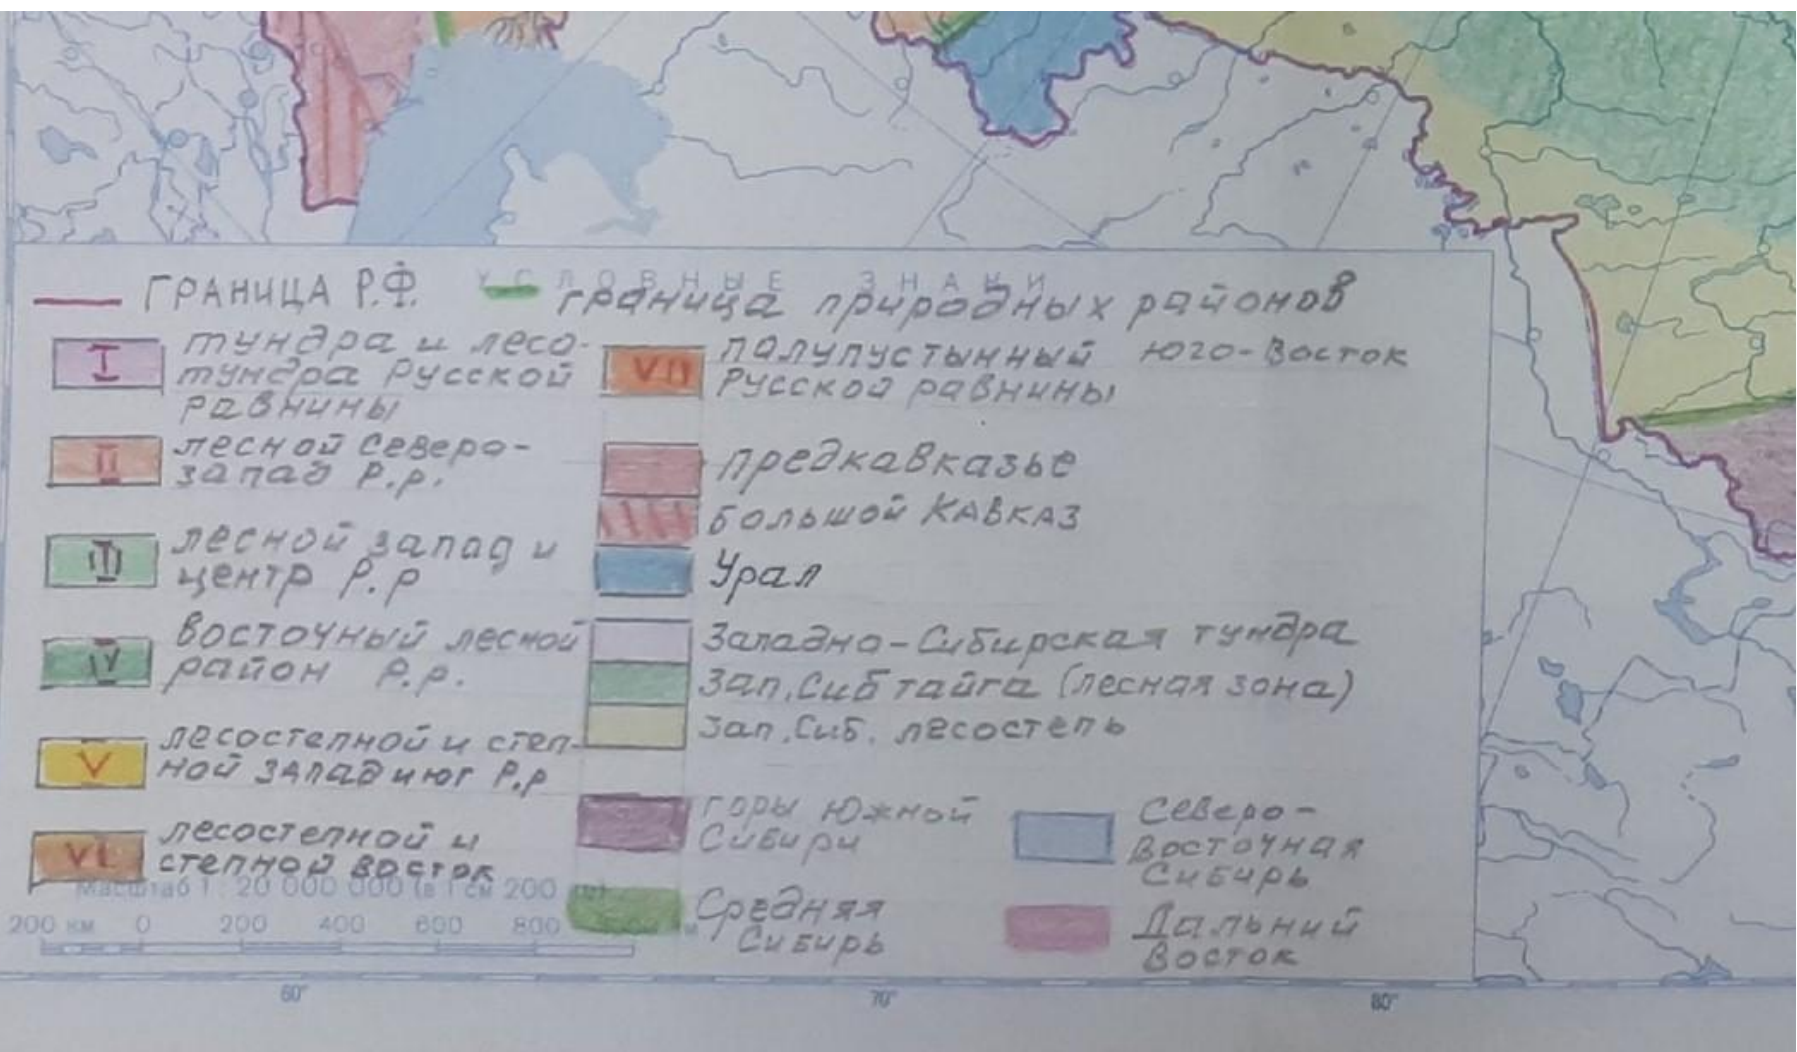 УСЛОВНЫЕ ЗНАКИ
ГРАНИЦА Р.Ф.
граница природных районов
I
тундра и лесо-
тундра Русской
равнины
II
лесной Северо-
запад Р.р.
III
лесной запад и
центр Р.р
IV
восточный лесной
район Р.р.
V
лесостепной и степ-
ной запад и юг Р.р
VI
лесостепной и
степной восток
VII
полупустынный юго-восток
Русской равнины
предкавказье
большой КАВКАЗ
Урал
Западно-Сибирская тундра
Зап.Сиб тайга (лесная зона)
Зап.Сиб. лесостепь
горы Южной
Сибири
Средняя
Сибирь
Северо-
восточная
Сибирь
Дальний
Восток
Масштаб 1 : 20 000 000 (в 1 см 200
200 км 0 200 400 600 800
60° 70° 80°